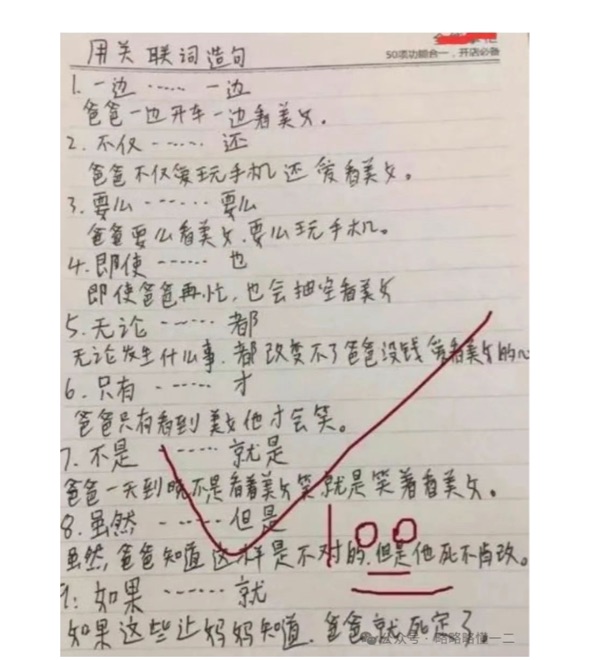 50项功能合一，开店必备
用关联词造句
1. 一边 ...... 一边
爸爸一边开车一边看美女。
2. 不仅 ...... 还
爸爸不仅爱玩手机还爱看美女。
3. 要么 ...... 要么
爸爸要么看美女，要么玩手机。
4. 即使 ...... 也
即使爸爸再忙，也会抽空看美女
5. 无论 ...... 都
无论发生什么事，都改变不了爸爸没钱爱看美女的心
6. 只有 ...... 才
爸爸只有看到美女他才会笑。
7. 不是 ...... 就是
爸爸一天到晚不是看着美女笑就是笑着看美女。
8. 虽然 ...... 但是
虽然，爸爸知道这样是不对的，但是他死不肯改。
9. 如果 ...... 就
如果这些让妈妈知道，爸爸就死定了
公众号·略略略懂一二